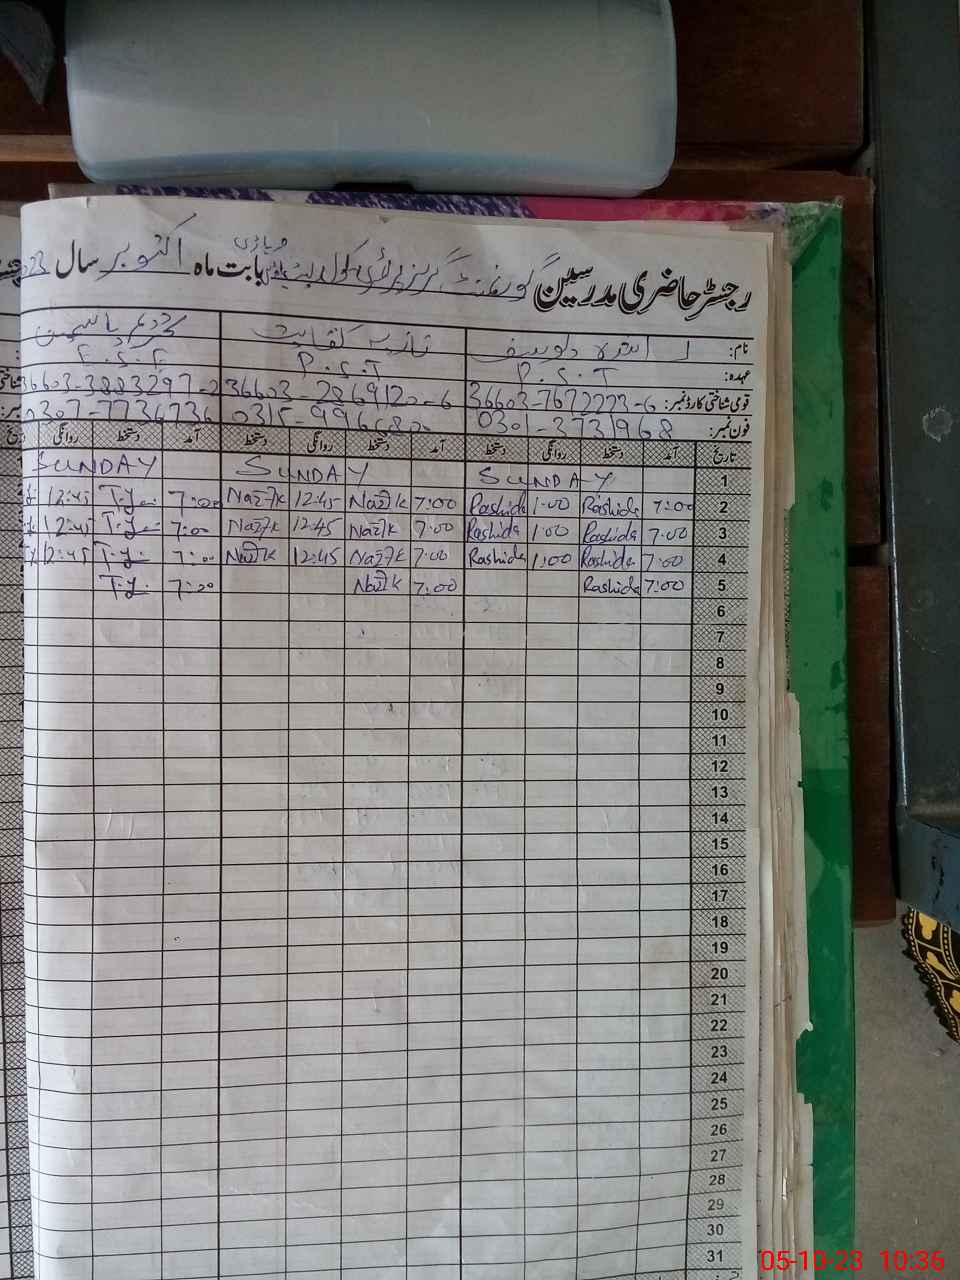 رجسٹر حاضری مدرسین گورنمنٹ گرلز پرائمری سکول بابت ماہ اکتوبر سال 23
نام: راشدہ یوسف نازیہ کفایت یاسمین
عہدہ: P.S.T P.S.T E.S.E
قومی شناختی کارڈ نمبر: 36603-7672223-6 36603-2869120-6 36603-3883297-2
فون نمبر: 0301-3731968 0315-9966820 0307-7736736
تاریخ آمد دستخط روانگی دستخط آمد دستخط روانگی دستخط آمد دستخط روانگی
1 SUNDAY SUNDAY SUNDAY
2 7:00 Rashida 1:00 Rashida 7:00 Nazik 12:45 Nazik 7:00 T.y 12:45
3 7:00 Rashida 1:00 Rashida 7:00 Nazik 12:45 Nazik 7:00 T.y 12:45
4 7:00 Rashida 1:00 Rashida 7:00 Nazik 12:45 Nazik 7:00 T.y 12:45
5 7:00 Rashida 7:00 Nazik 7:00 T.y
6
7
8
9
10
11
12
13
14
15
16
17
18
19
20
21
22
23
24
25
26
27
28
29
30
31
05-10-23 10:36